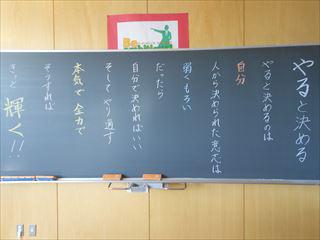 やると決める
やると決めるのは
自分
人から決められた意志は
弱くもろい
だったら
自分で決めればいい
そして やり通す
本気で 全力で
そうすれば
きっと 輝く!!